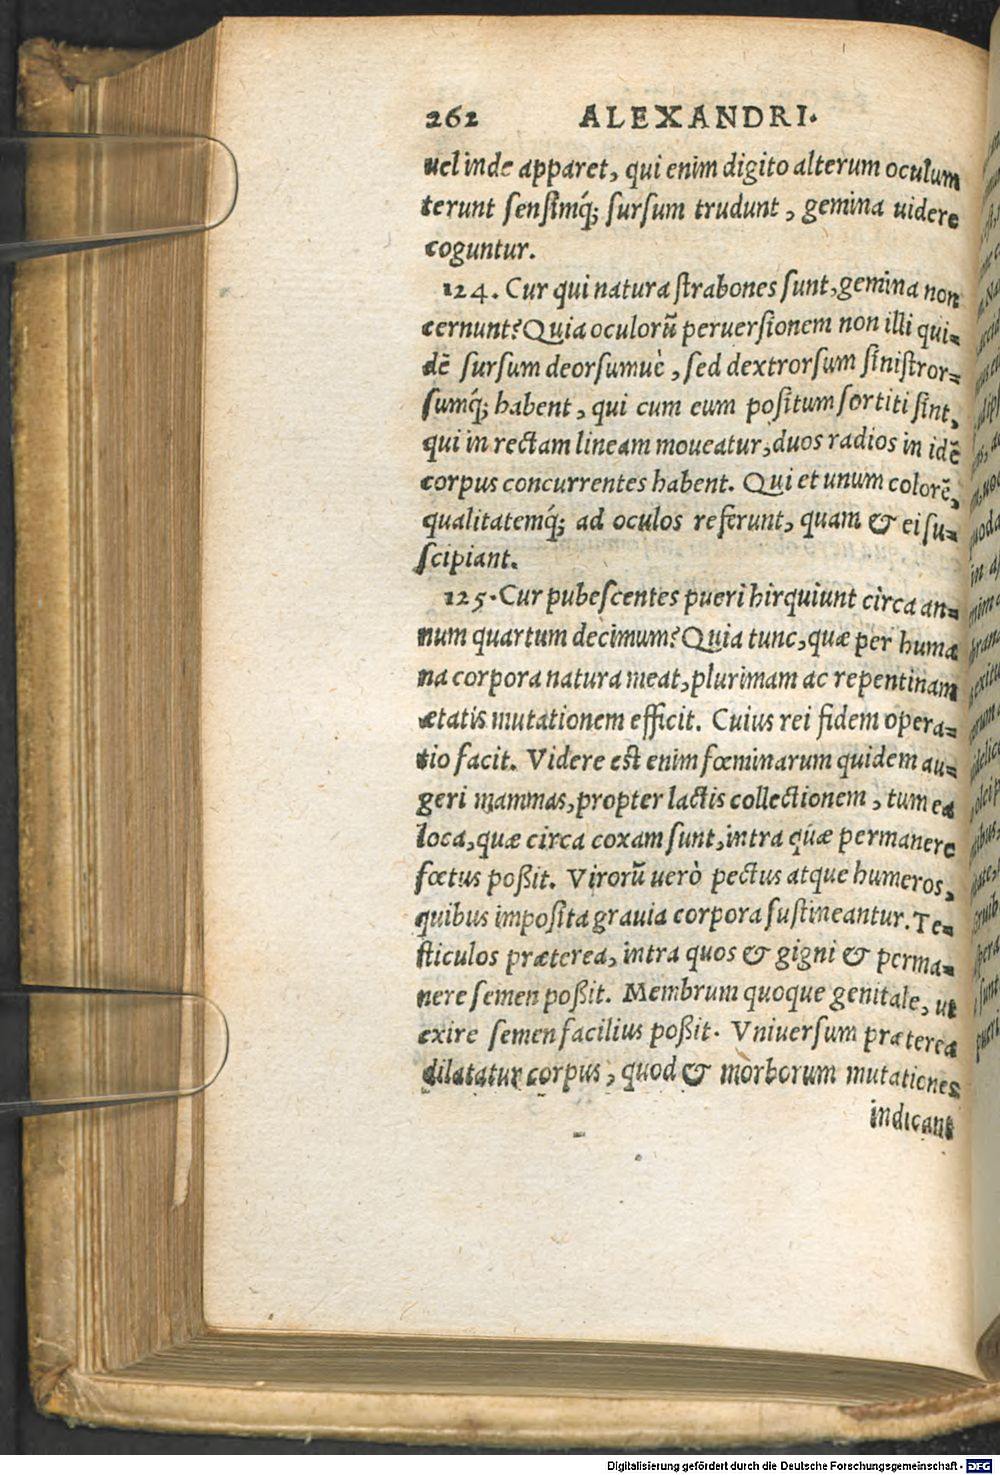 262 ALEXANDRI.
uel inde apparet, qui enim digito alterum oculum
terunt sensimq́; sursum trudunt, gemina uidere
coguntur.
124. Cur qui natura strabones sunt, gemina non
cernunt? Quia oculorũ peruersionem non illi qui=
dẽ sursum deorsumuè, sed dextrorsum sinistror=
sumq́; habent, qui cum eum positum sortiti sint,
qui in rectam lineam moueatur, duos radios in idẽ
corpus concurrentes habent. Qui et unum colorẽ,
qualitatemq́; ad oculos referunt, quam & ei su=
scipiant.
125. Cur pubescentes pueri hirquiunt circa an=
num quartum decimum? Quia tunc, quæ per huma
na corpora natura meat, plurimam ac repentinam
ætatis mutationem efficit. Cuius rei fidem opera=
tio facit. Videre est enim fœminarum quidem au=
geri mammas, propter lactis collectionem, tum ea
loca, quæ circa coxam sunt, intra quæ permanere
fœtus poßit. Virorũ uerò pectus atque humeros,
quibus imposita grauia corpora sustineantur. Te=
sticulos præterea, intra quos & gigni & perma=
nere semen poßit. Membrum quoque genitale, ut
exire semen facilius poßit. Vniuersum præterea
dilatatur corpus, quod & morborum mutationes
indicant
Digitalisierung gefördert durch die Deutsche Forschungsgemeinschaft - DFG